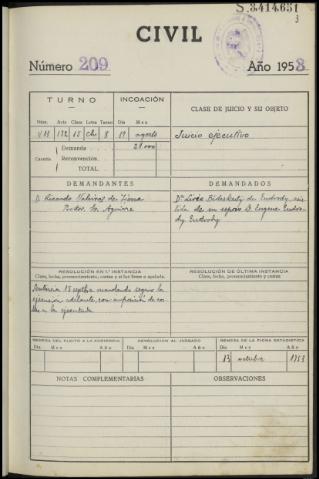 S.3414.651
3
CIVIL
Número 209 Año 1953
TURNO INCOACIÓN CLASE DE JUICIO Y SU OBJETO
Núm. Acta Clase Letra Turno Día Mes
VII 132 15 Ch 8 19 agosto Juicio ejecutivo
Cuantía Demanda 21.000
Reconvención
TOTAL
DEMANDANTES DEMANDADOS
D. Ricardo
de su esposo D. Eugenio
RESOLUCIÓN EN 1.ª INSTANCIA RESOLUCIÓN DE ÚLTIMA INSTANCIA
Clase, fecha, pronunciamiento, costas y si fue firme o apelada. Clase, fecha, pronunciamiento y costas
Sentencia 15 septbre mandando seguir la
ejecución adelante, con imposición de cos-
tas a la ejecutada
REMESA DEL PLEITO A LA AUDIENCIA DEVOLUCIÓN AL JUZGADO REMESA DE LA FICHA ESTADÍSTICA
Día Mes Año Día Mes Año Día Mes Año
13 octubre 1953
NOTAS COMPLEMENTARIAS OBSERVACIONES